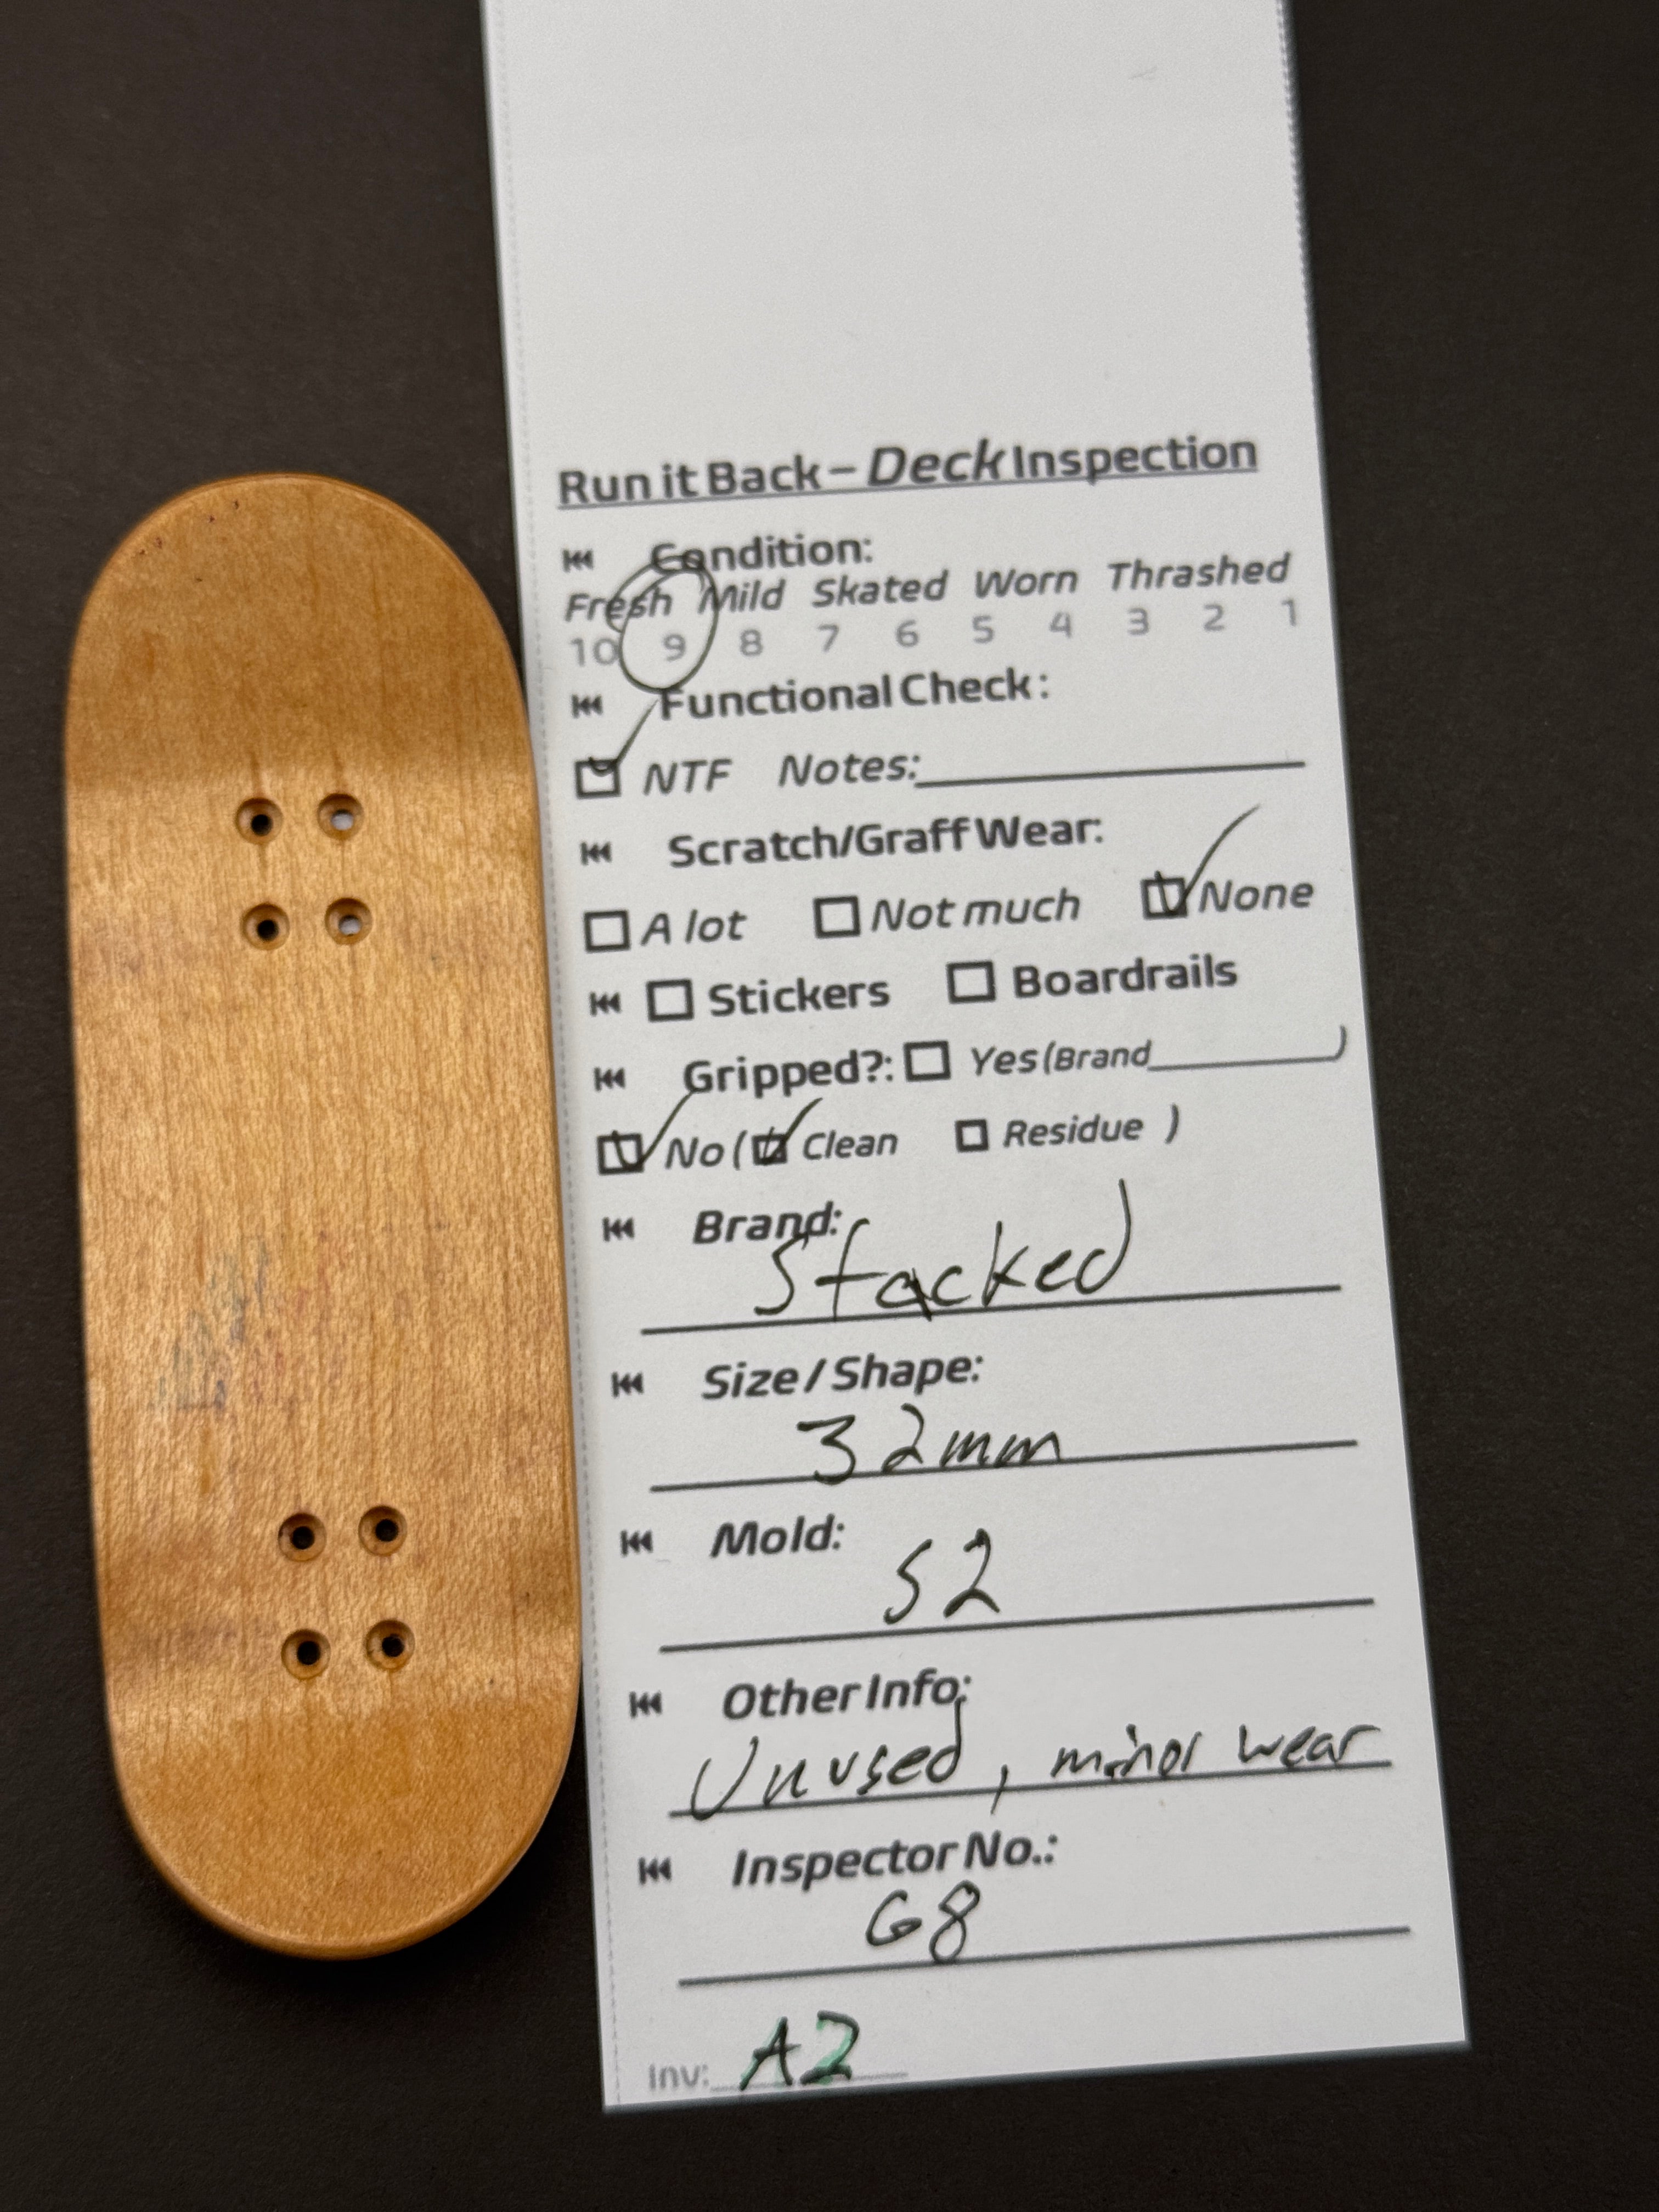 Run it Back – Deck Inspection
Condition:
Fresh Mild Skated Worn Thrashed
10 9 8 7 6 5 4 3 2 1
Functional Check:
NTF Notes:
Scratch/Graff Wear:
A lot Not much None
Stickers Boardrails
Gripped?: Yes (Brand )
No ( Clean Residue )
Brand:
Stacked
Size / Shape:
32mm
Mold:
S2
Other Info:
Unused, minor wear
Inspector No.:
G8
Inv: A2